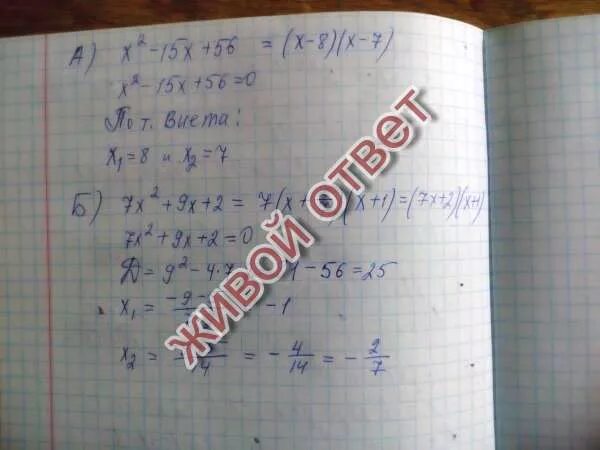 А) x² - 15x + 56 = (x-8)(x-7)
x² - 15x + 56 = 0
По т. Виета:
x₁ = 8 и x₂ = 7
Б) 7x² + 9x + 2 = 7(x + (x+1) = (7x+2)(x+1)
7x² + 9x + 2 = 0
Д = 9² - 4·7 - 56 = 25
x₁ = -9 -1
x₂ = = - 4/14 = - 2/7
ЖИВОЙ ОТВЕТ